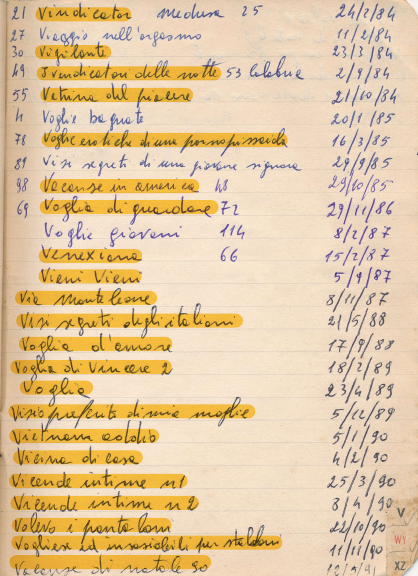 21 Vindicator Medusa 25 24/2/84
27 Viaggio nell'orgasmo 11/2/84
30 Vigilante 23/3/84
49 I vendicatori della notte 53 Calabria 2/9/84
55 Vetrina del piacere 21/10/84
4 Voglie bagnate 20/1/85
78 Voglie erotiche di una 16/3/85
89 Vizi segreti di una giovane signora 29/9/85
98 Vacanze in america 48 29/10/85
69 Voglia di guardare 72 29/11/86
Voglie giovani 114 8/2/87
Venexiana 66 15/2/87
Vieni Vieni 5/9/87
Via Montenleone 8/11/87
Vizi segreti degli italiani 21/5/88
Voglia d'amore 17/9/88
Voglia di Vincere 2 18/2/89
Voglia 23/4/89
di mia moglie 5/12/89
Vietnam addio 5/1/90
Vicina di casa 4/2/90
Vicende intime n1 25/3/90
Vicende intime n2 8/4/90
Volevo i pantaloni 22/10/90
Vogliose ed insaziabili per stalloni 11/11/90
Vacanze di natale 90
V
WY
XZ